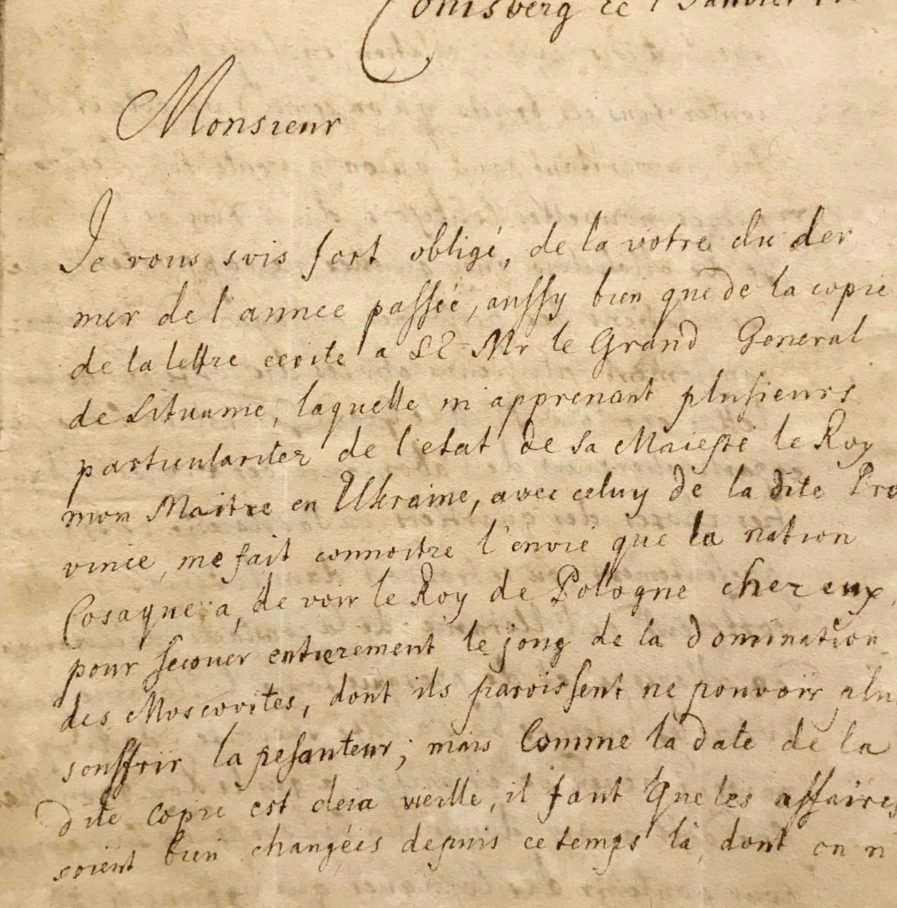 Conisberg ce Janvier
Monsieur
Je vous suis fort obligé, de la votre du der
nier de l'annee passée, aussy bien que de la copie
de la lettre ecrite a SE Mr le Grand General
de Lituanie, laquelle m'apprenant plusieurs
particularitez de l'etat de sa Maiesté le Roy
mon Maitre en Ukraine, avec celuy de la dite Pro
vince, me fait connoitre l'envie que la nation
Cosaque a, de voir le Roy de Pologne chez eux,
pour secouer entierement le joug de la domination
des Moscovites, dont ils paroissent ne pouvoir plu
souffrir la pesanteur; mais comme la date de la
dite copie est deia vieille, il faut que les affaires
soient bien changées depuis ce temps là, dont on n